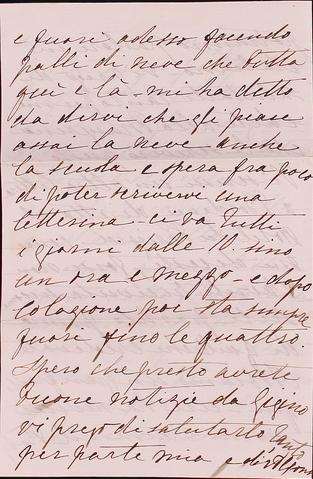 e fuori adesso facendo
palli di neve che butta
quì e là - mi ha detto
da dirvi che gli piace
assai la neve anche
la scuola e spera fra poco
di poter scrivervi una
letterina. ci va tutti
i giorni dalle 10. sino
un ora e mezzo - e dopo
colazione poi sta sempre
fuori fino le quattro.
Spero che presto avrete
buone notizie da Gigino
vi prego di salutarlo tanto
per parte mia e di